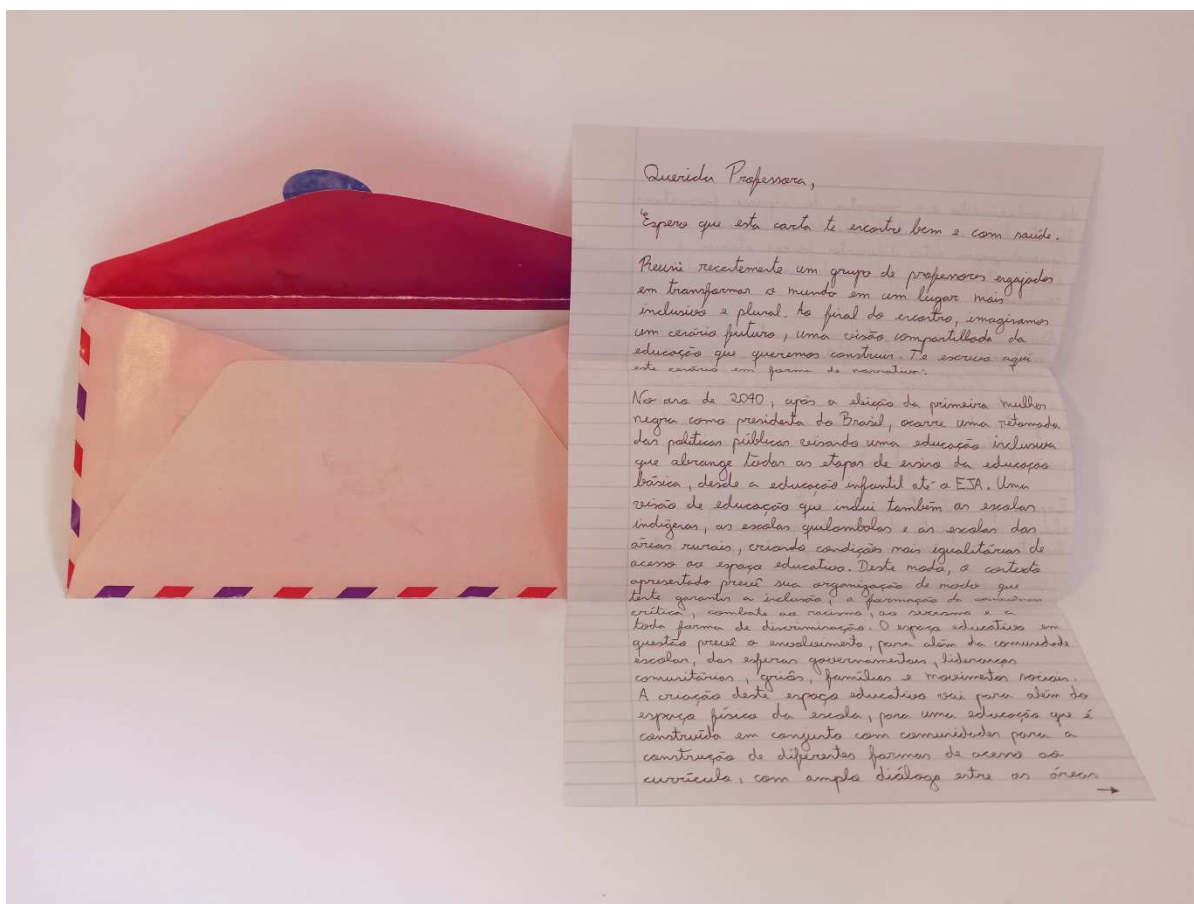 Querida Professora,
Espero que esta carta te encontre bem e com saúde.
Reuni recentemente um grupo de professores engajados
em transformar o mundo em um lugar mais
inclusivo e plural. Ao final do encontro, imaginamos
um cenário futuro, uma visão compartilhada da
educação que queremos construir. Te escrevo aqui
este cenário em forma de narrativa:
No ano de 2040, após a eleição da primeira mulher
negra como presidenta do Brasil, ocorre uma retomada
das políticas públicas visando uma educação inclusiva
que abrange todas as etapas de ensino da educação
básica, desde a educação infantil até a EJA. Uma
visão de educação que inclui também as escolas
indígenas, as escolas quilombolas e as escolas das
áreas rurais, criando condições mais igualitárias de
acesso ao espaço educativo. Deste modo, o contexto
apresentado prevê sua organização de modo que
tente garantir a inclusão, a formação de
crítica, combate ao racismo, ao sexismo e a
toda forma de discriminação. O espaço educativo em
questão prevê o envolvimento, para além da comunidade
escolar, das esferas governamentais, lideranças
comunitárias, griôs, famílias e movimentos sociais.
A criação deste espaço educativo vai para além do
espaço físico da escola, para uma educação que é
construída em conjunto com comunidades para a
construção de diferentes formas de acesso ao
currículo, com amplo diálogo entre as áreas
→